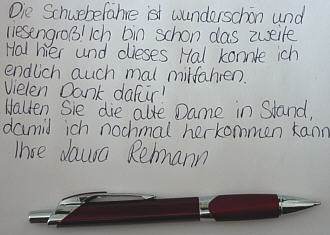 Die Schwebefähre ist wunderschön und
riesengroß! Ich bin schon das zweite
Mal hier und dieses Mal konnte ich
endlich auch mal mitfahren.
Vielen Dank dafür!
Halten Sie die alte Dame in Stand,
damit ich nochmal herkommen kann
Ihre Laura Rehmann